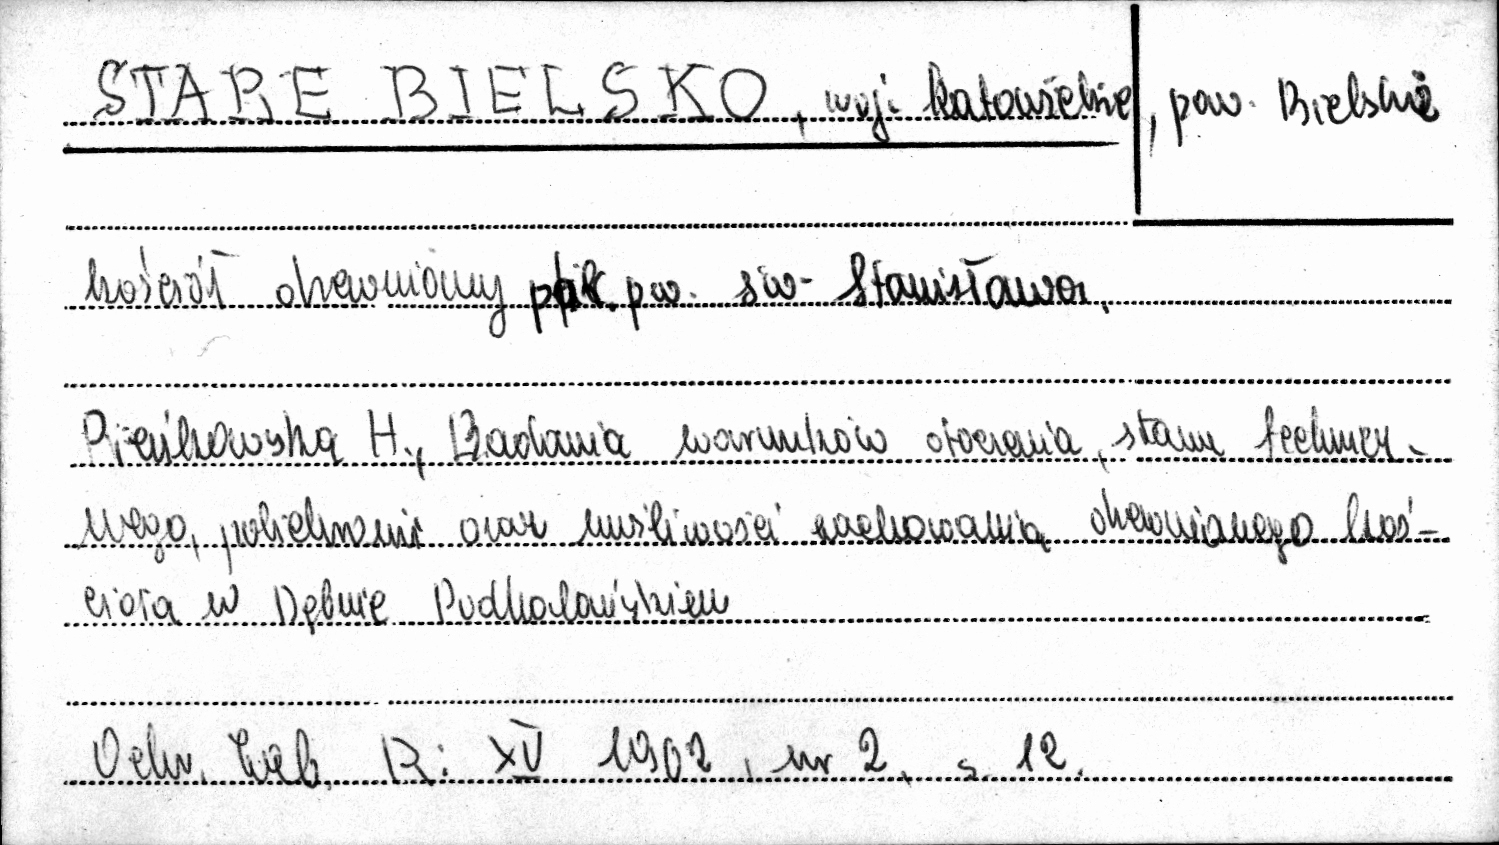 STARE BIELSKO, woj. katowickie, pow. Bielskie
kościół drewniany par. pw. św. Stanisława.
Pieńkowska H., Badania warunków otoczenia, stanu technicz-
nego, polichromii oraz możliwości zachowania drewnianego koś-
cioła w Dębnie Podhalańskiem
Ochr. Zab. R: XV 1962, nr 2, s. 12.